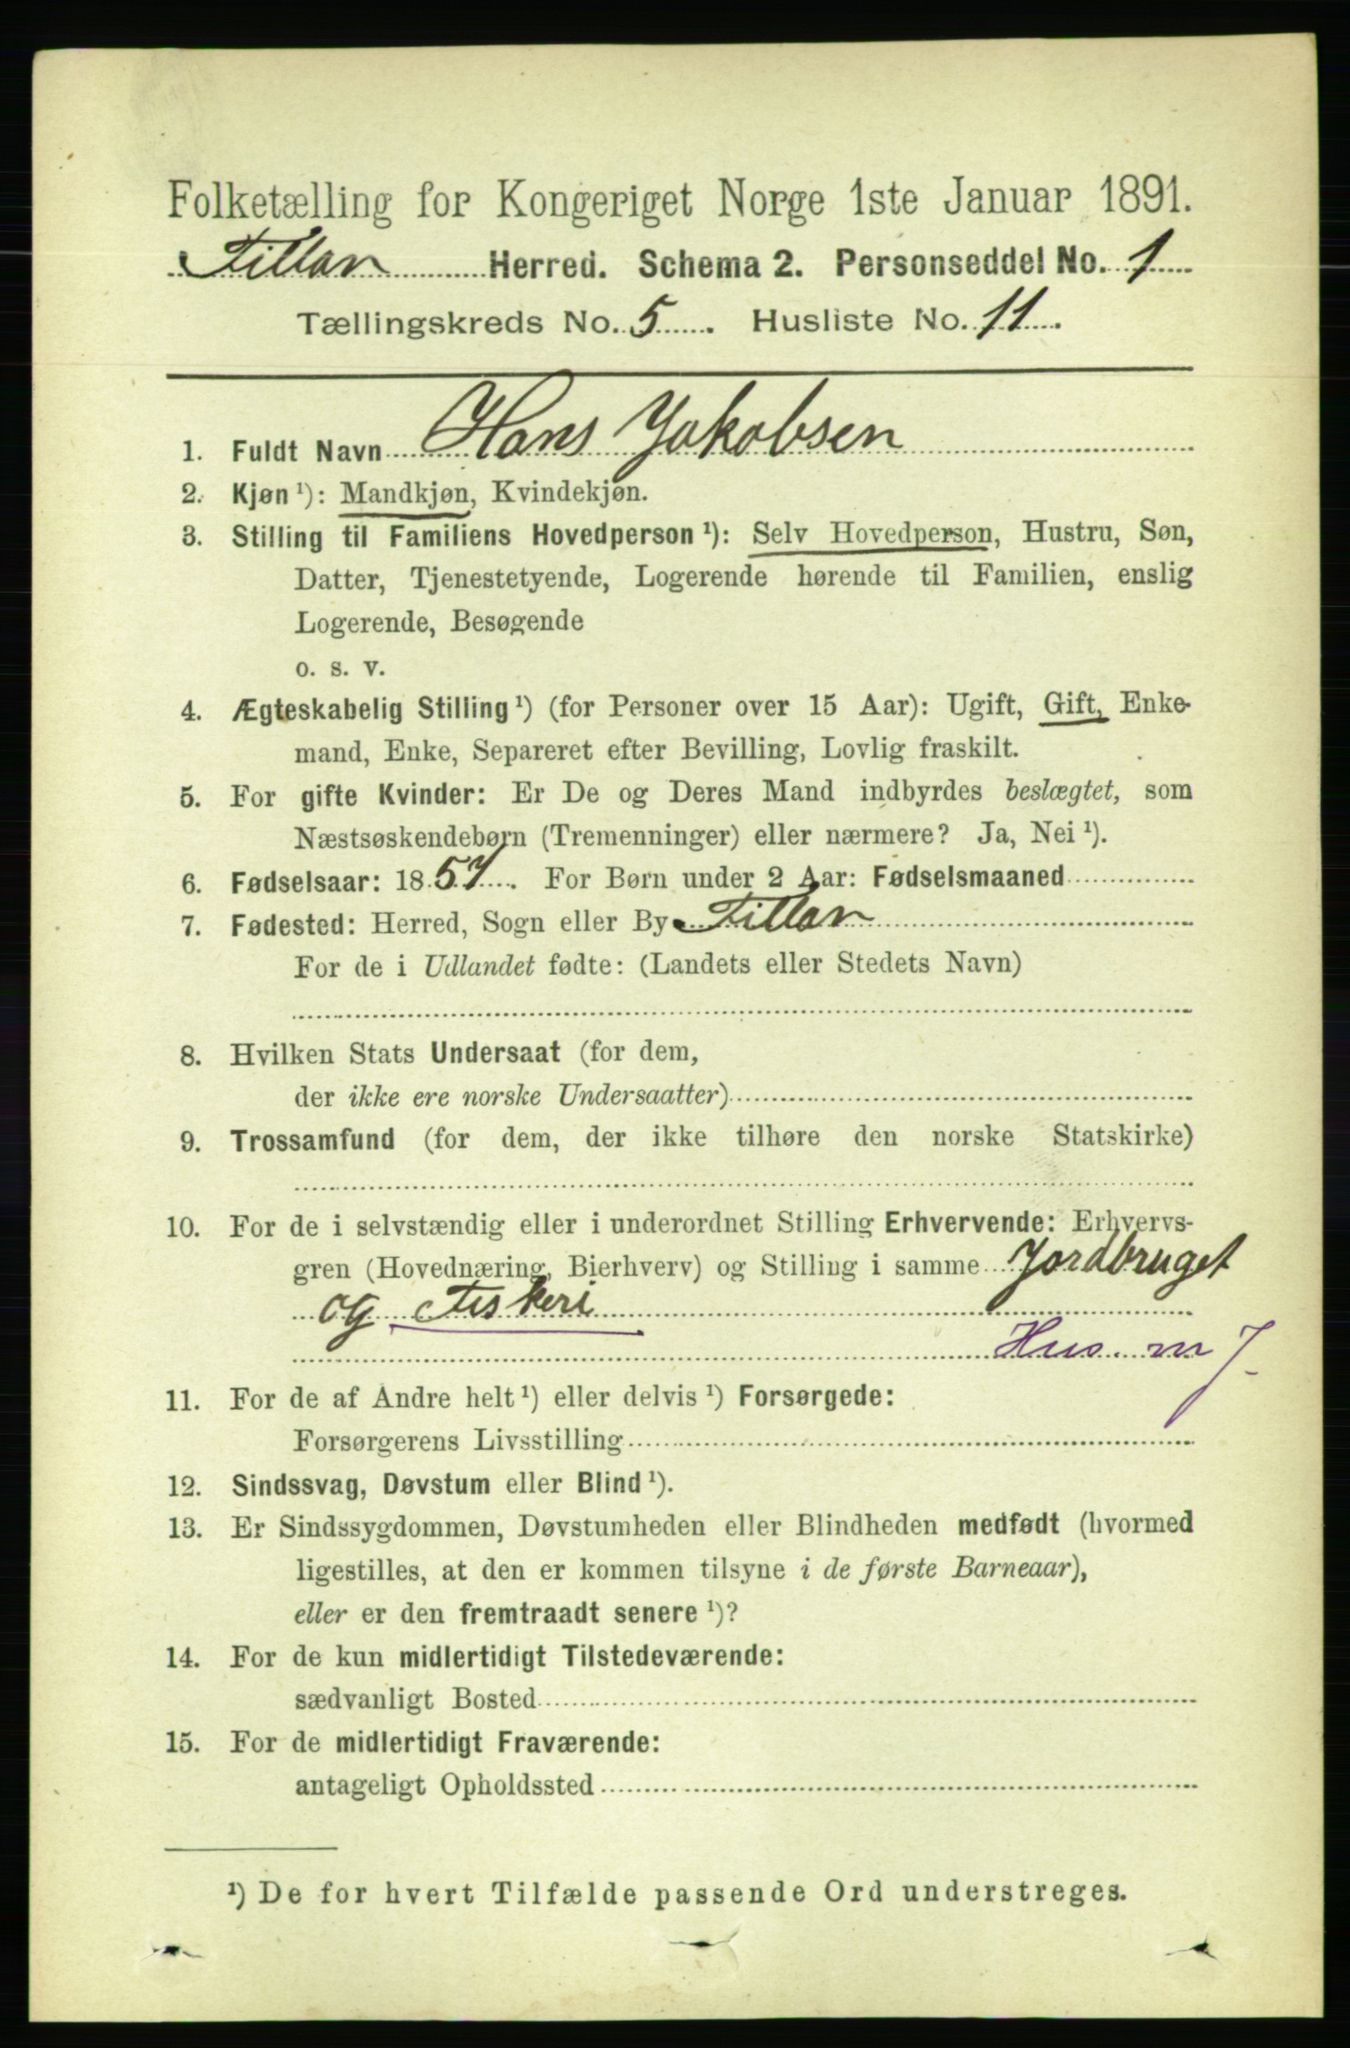 Folketælling for Kongeriget Norge 1ste Januar 1891.
Fillan Herred. Schema 2. Personseddel No. 1
Tællingskreds No. 5. Husliste No. 11.
1. Fuldt Navn Hans Jakobsen
2. Kjøn ¹): Mandkjøn, Kvindekjøn.
3. Stilling til Familiens Hovedperson ¹): Selv Hovedperson, Hustru, Søn,
Datter, Tjenestetyende, Logerende hørende til Familien, enslig
Logerende, Besøgende
o. s. v.
4. Ægteskabelig Stilling ¹) (for Personer over 15 Aar): Ugift, Gift, Enke-
mand, Enke, Separeret efter Bevilling, Lovlig fraskilt.
5. For gifte Kvinder: Er De og Deres Mand indbyrdes beslægtet, som
Næstsøskendebørn (Tremenninger) eller nærmere? Ja, Nei ¹).
6. Fødselsaar: 1857. For Børn under 2 Aar: Fødselsmaaned
7. Fødested: Herred, Sogn eller By Fillan
For de i Udlandet fødte: (Landets eller Stedets Navn)
8. Hvilken Stats Undersaat (for dem,
der ikke ere norske Undersaatter)
9. Trossamfund (for dem, der ikke tilhøre den norske Statskirke)
10. For de i selvstændig eller i underordnet Stilling Erhvervende: Erhvervs-
gren (Hovednæring, Bierhverv) og Stilling i samme Jordbruget
og Fiskeri
Hus. m J.
11. For de af Andre helt ¹) eller delvis ¹) Forsørgede:
Forsørgerens Livsstilling
12. Sindssvag, Døvstum eller Blind ¹).
13. Er Sindssygdommen, Døvstumheden eller Blindheden medfødt (hvormed
ligestilles, at den er kommen tilsyne i de første Barneaar),
eller er den fremtraadt senere ¹)?
14. For de kun midlertidigt Tilstedeværende:
sædvanligt Bosted
15. For de midlertidigt Fraværende:
antageligt Opholdssted
¹) De for hvert Tilfælde passende Ord understreges.